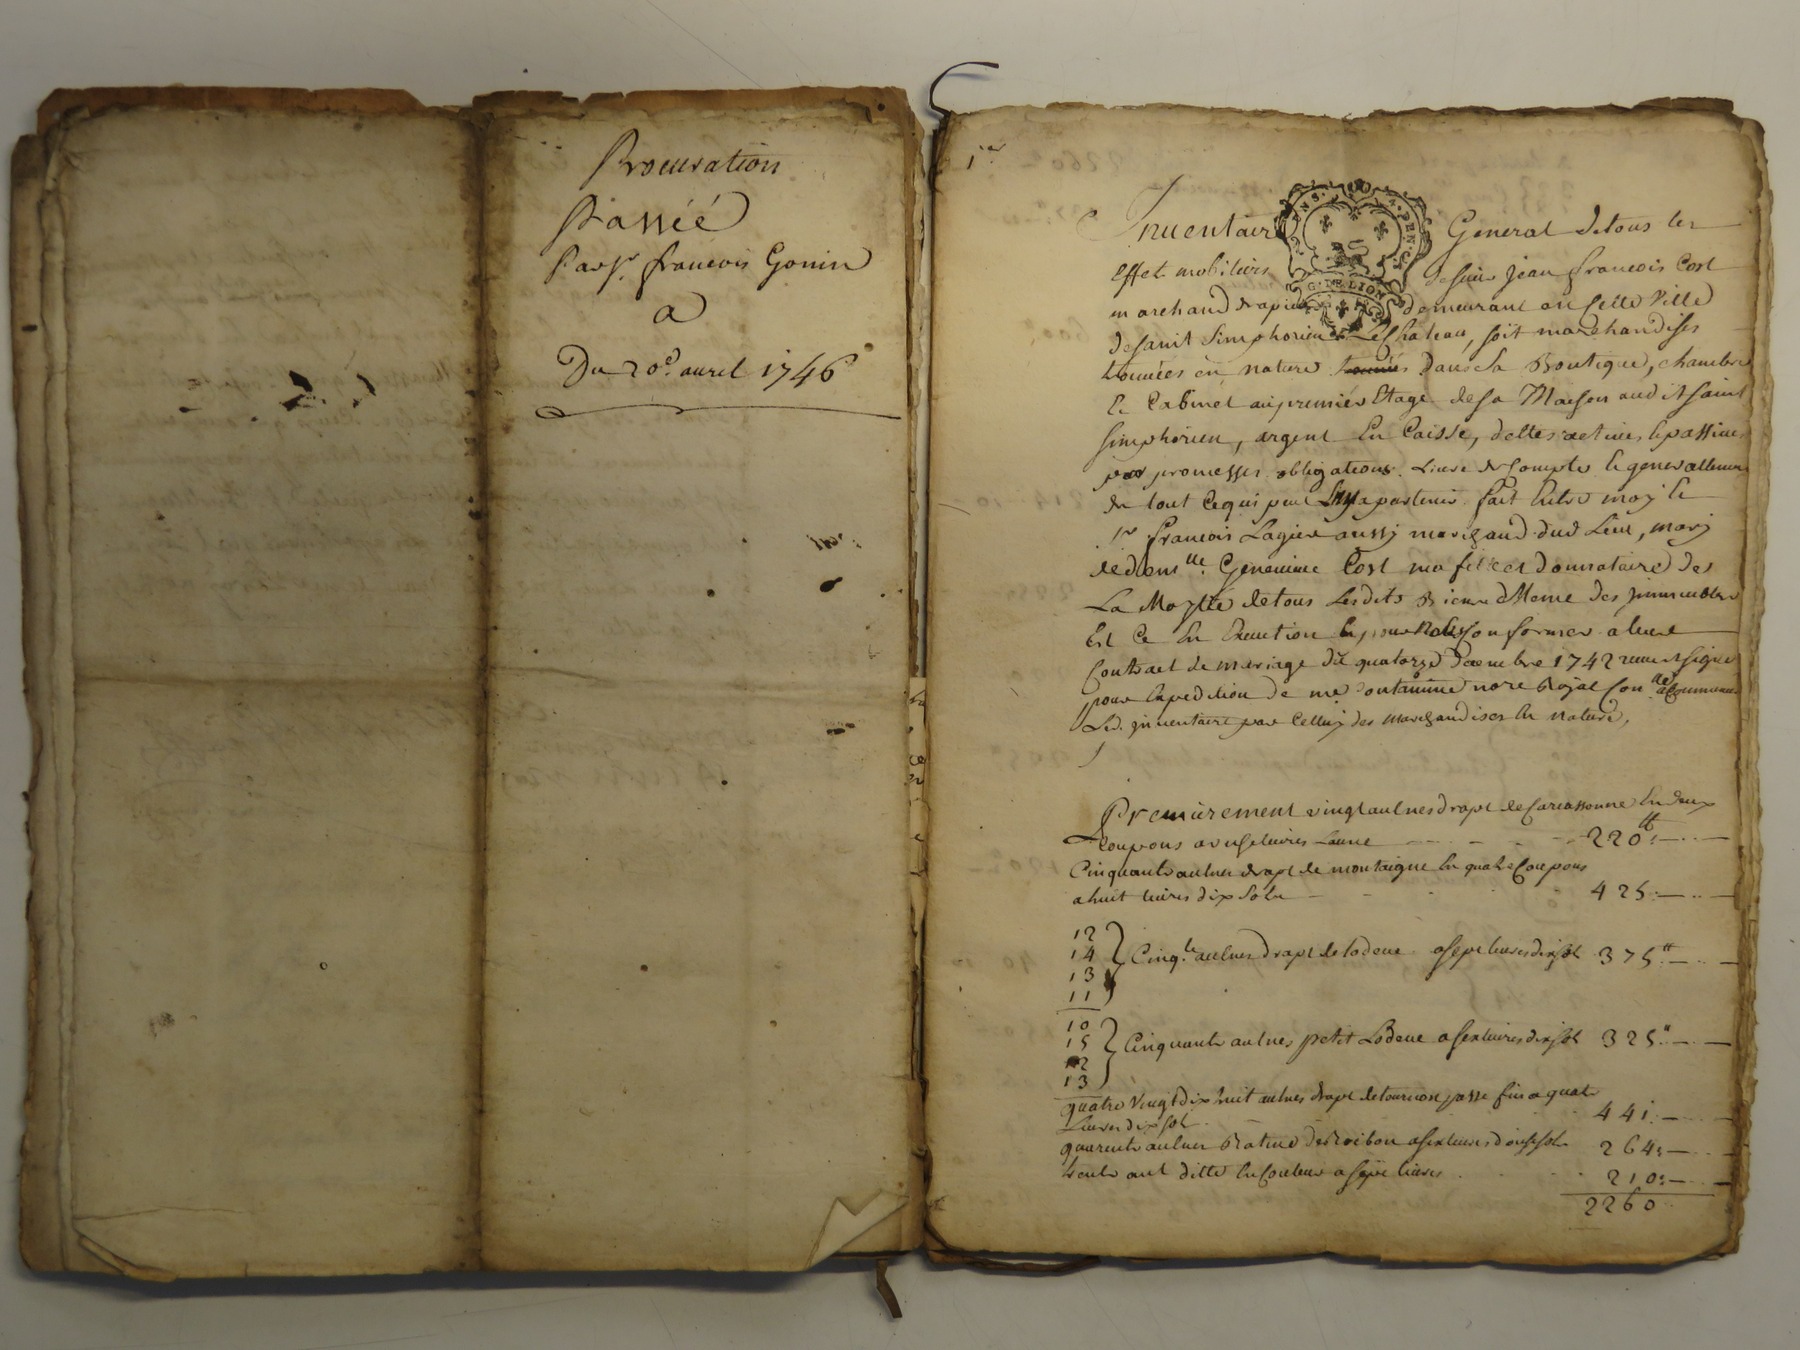 Procuration
Passéé
Par sr. francois Gonin
a
Du 20e. auril 1746
1er
Inuentaire General de tous les
effet mobiliers de sieur Jean francois Cost
marchand drapier demeurant en cette Ville
de saint Simphorien Le Chateau, soit marchandises
trouuées en nature dans sa Boutique, chambre
& Cabinet au premiér Etage de sa Maison audit saint
simphorien, argent En Caisse, dettes actiues & passiues
promesses obligations Liure de Compte & generallement
de tout Ce qui peut apartenir fait Entre moy le
sr francois Lagier aussy marchand dud Lieu, mary
de dem lle. Geneuieue Cost ma fille et donnataire des
La Moytié de tous Lesdits Biens & Meme des jmmeubles
Et Ce En Execution & pour Conformer a leur
Contract de mariage du quatorze decembre 1742 signé
pour Expedition de me nore Royal
Led. jnuentaire par Celluy des marchandises En nature,
Premierement vingt aulnes drapt de Carcassonne En deux
Coupons a unse liures Laune 220tt
Cinquante aulnes drapt de montaigne En quatre Coupons
a huit liures dix Sols 425
12
14 } Cinqte. aulnes drapt de lodeue a sept liures dix sols 375tt
13
11
10
15 } Cinquante aulnes petit Lodeue a six liures dix sols 325"
12
13
quatre Vingt dix huit aulnes drapt de tournon passe fin a quatre
Liures dix sol 441
quarente aulnes Ratine de Roibon a six liures douse sols 264
trente aul ditte En Couleur a sept liures 210
2260